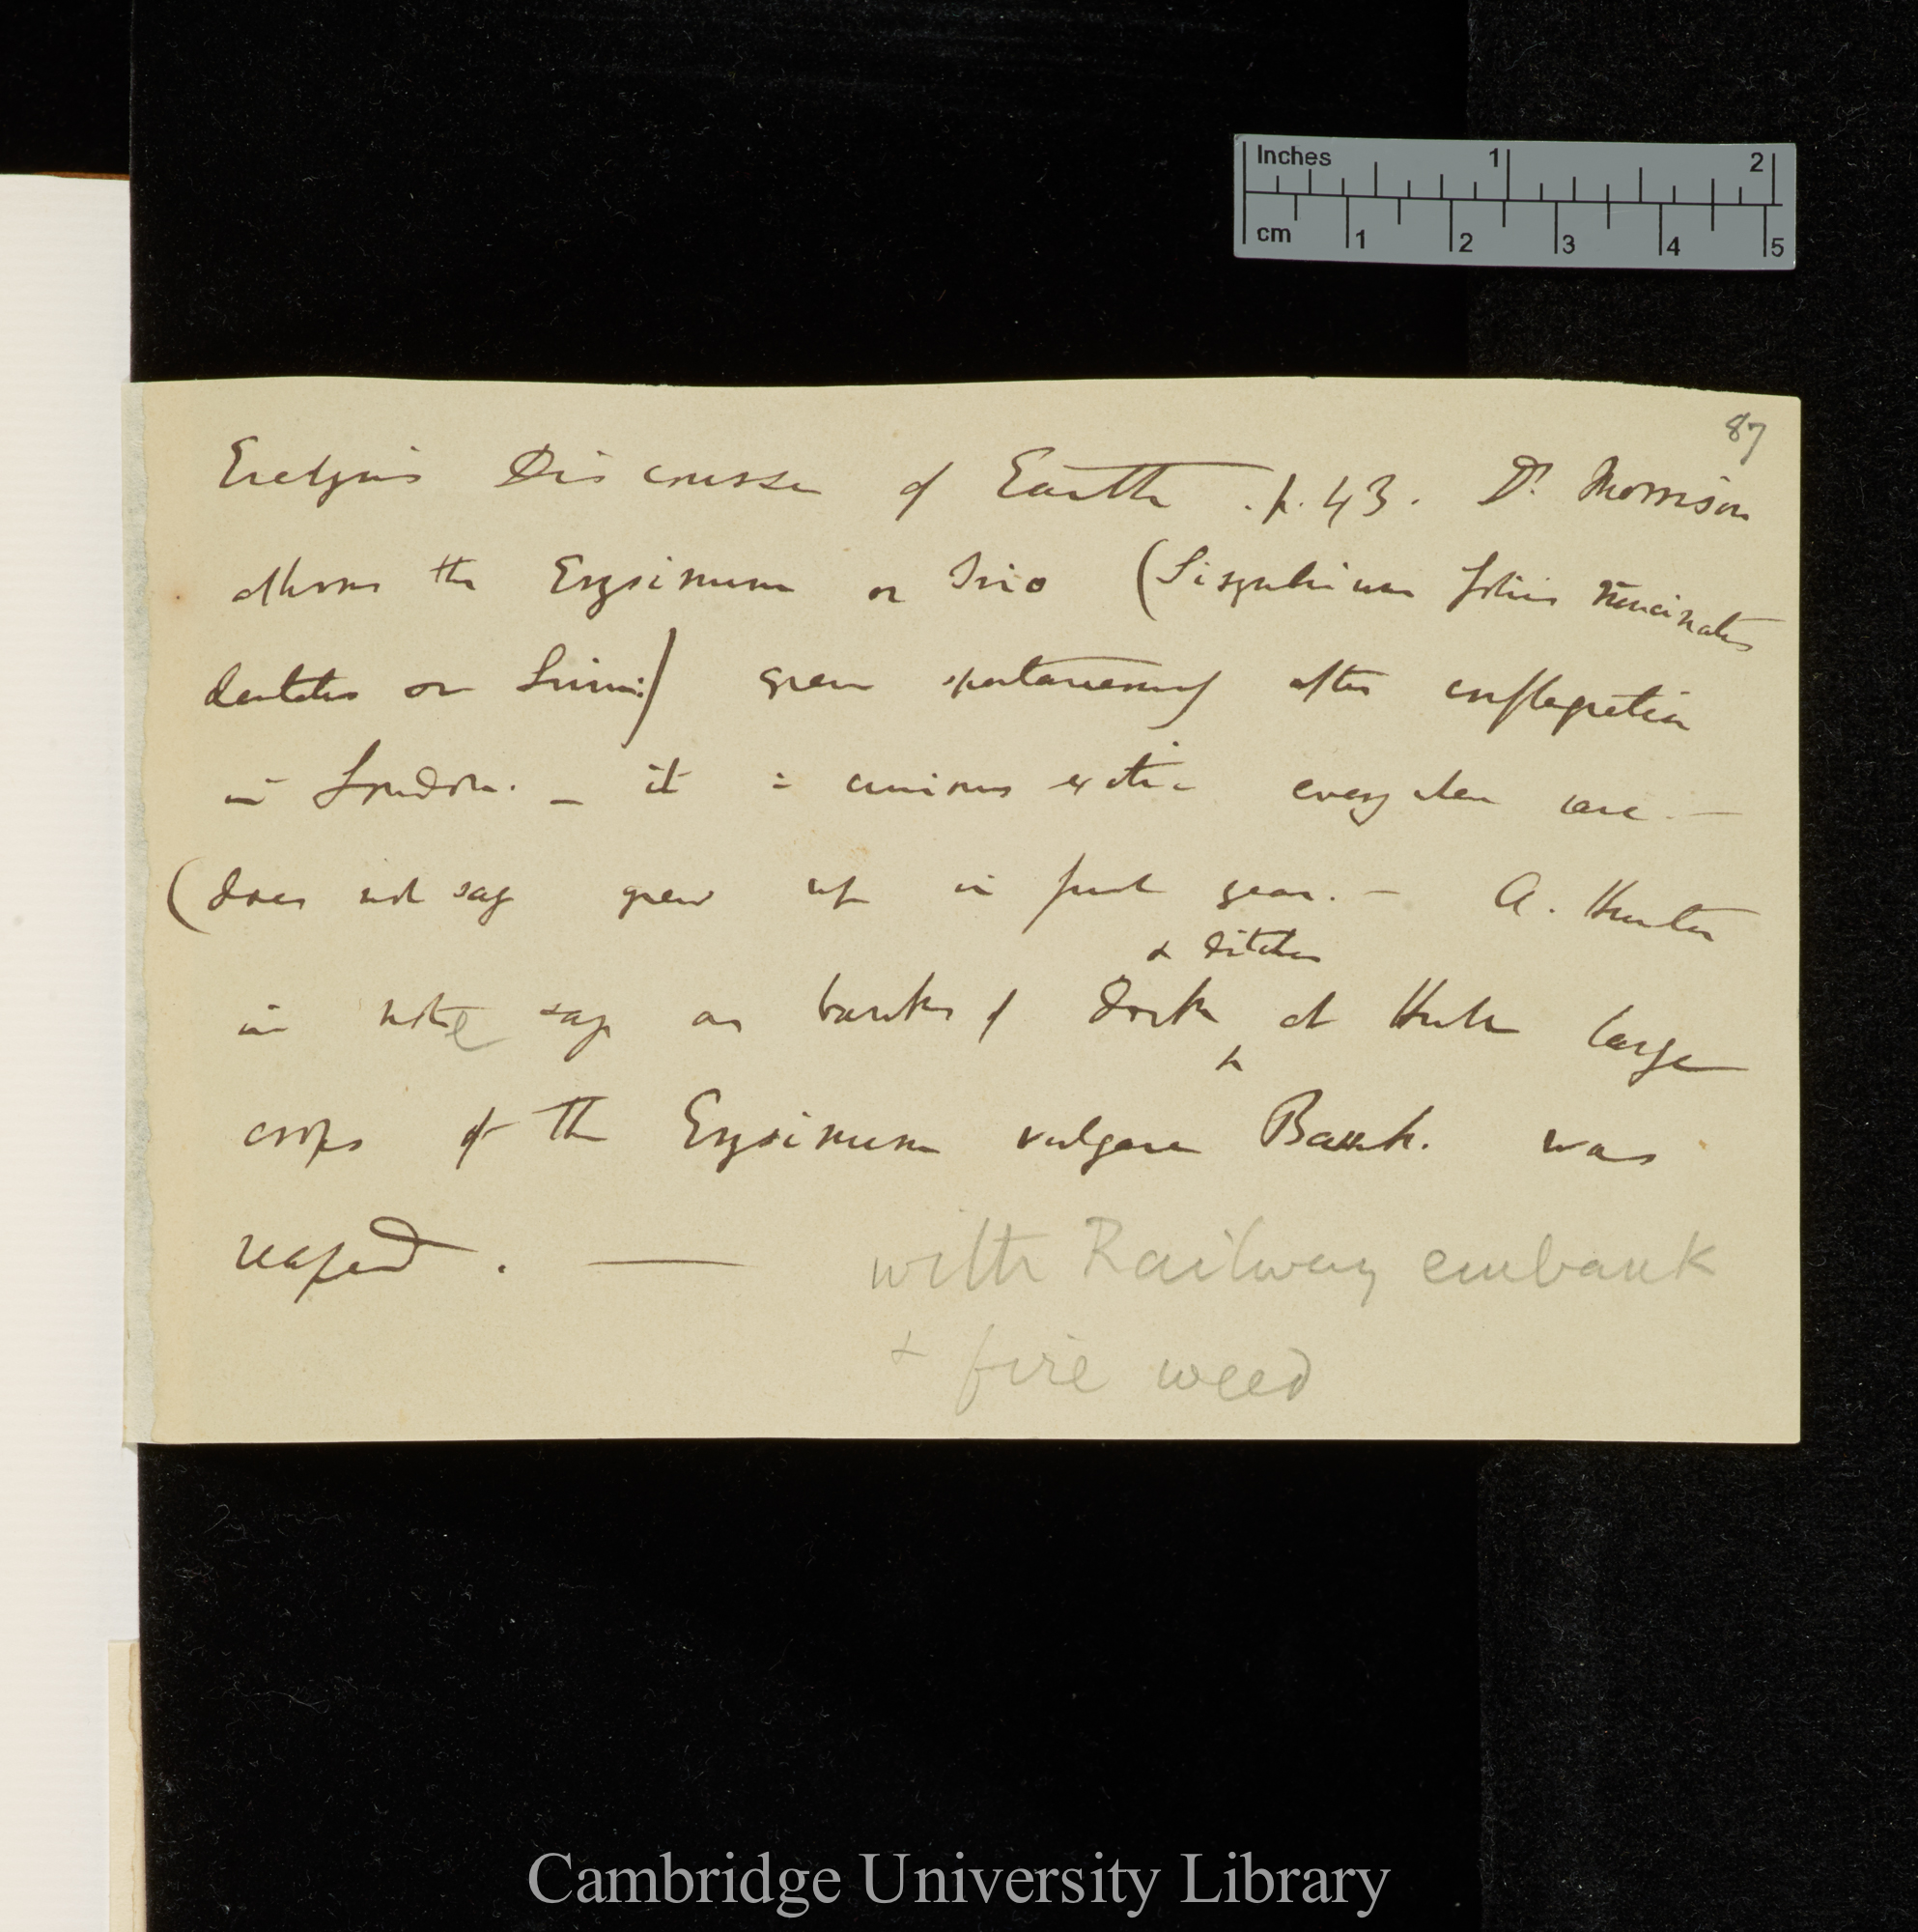 Inches 1 2
cm 1 2 3 4 5
87
Evelyn's Discourse of Earth. p. 43. Dr. Morrison
shows the Erysimum or Irio (Sisymbrium foliis runcinatis
dentatis on Linn:) grew spontaneously after conflagration
in London. — it is curious exotic every where care. —
(does not say grew up in first year. — A. Hunter
& ditches
in note say on banks of Dock ^ at Hull large
crops of the Erysimum vulgare Bauh. was
reaped. —
with Railway embank
+ fire weed
Cambridge University Library